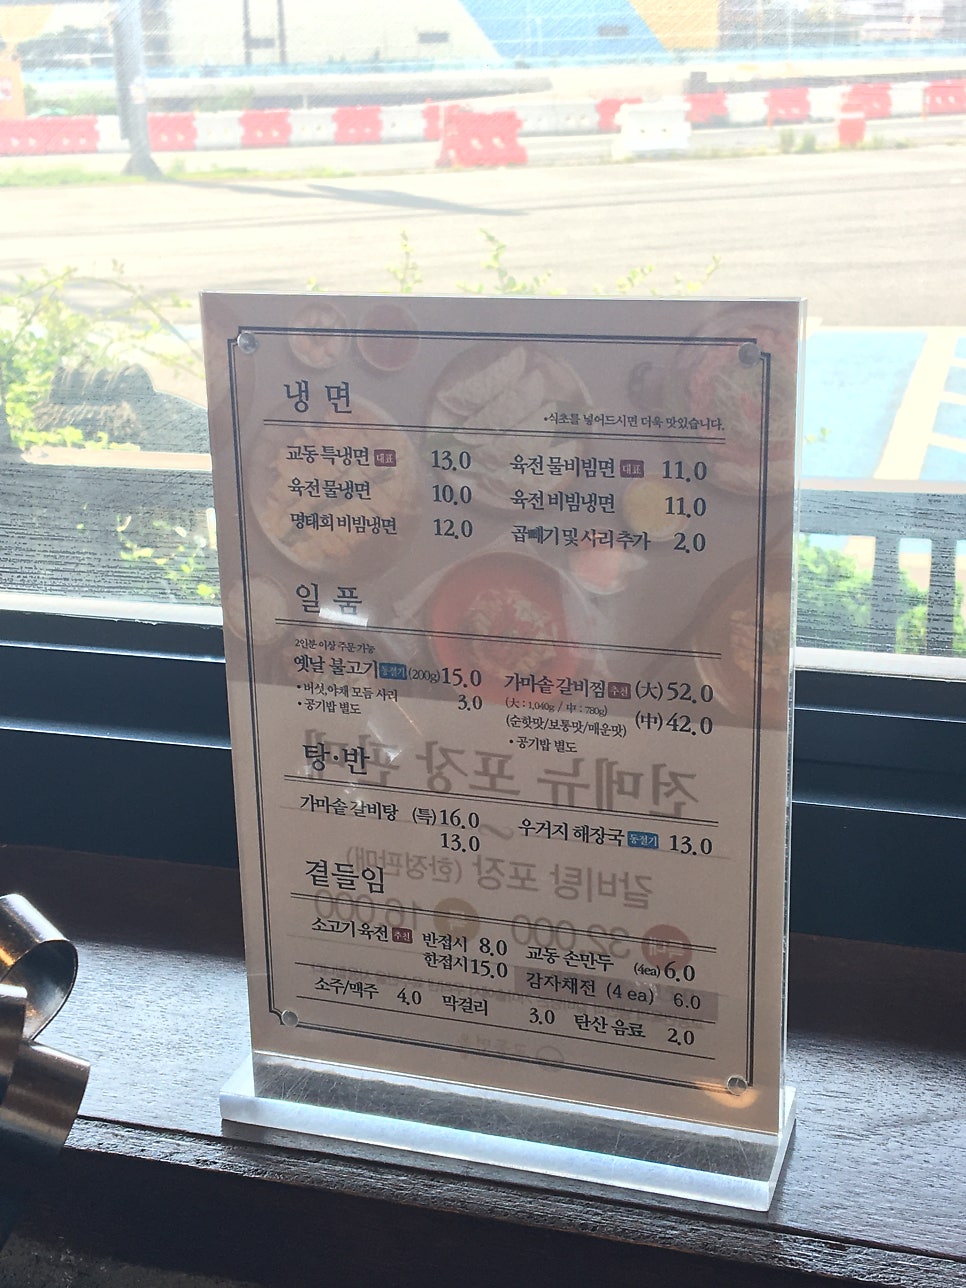 냉면
•식초를 넣어드시면 더욱 맛있습니다.
교동 특냉면 대표 13.0
육전 물비빔면 대표 11.0
육전 물냉면 10.0
육전 비빔냉면 11.0
명태회 비빔냉면 12.0
곱빼기 및 사리 추가 2.0
일품
2인분 이상 주문 가능
옛날 불고기 동절기 (200g) 15.0
• 버섯,야채 모듬 사리 3.0
• 공기밥 별도
가마솥 갈비찜 추천 (大) 52.0
(大 : 1,040g / 中 : 780g)
(순한맛/보통맛/매운맛) (中) 42.0
• 공기밥 별도
탕·반
가마솥 갈비탕 (특) 16.0
13.0
우거지 해장국 동절기 13.0
곁들임
소고기 육전 추천 반접시 8.0
한접시 15.0
교동 손만두 (4ea) 6.0
감자채전 (4 ea) 6.0
소주/맥주 4.0 막걸리 3.0 탄산 음료 2.0
전메뉴 포장 판매
갈비탕 포장 (한정판매)
32,000
16,000